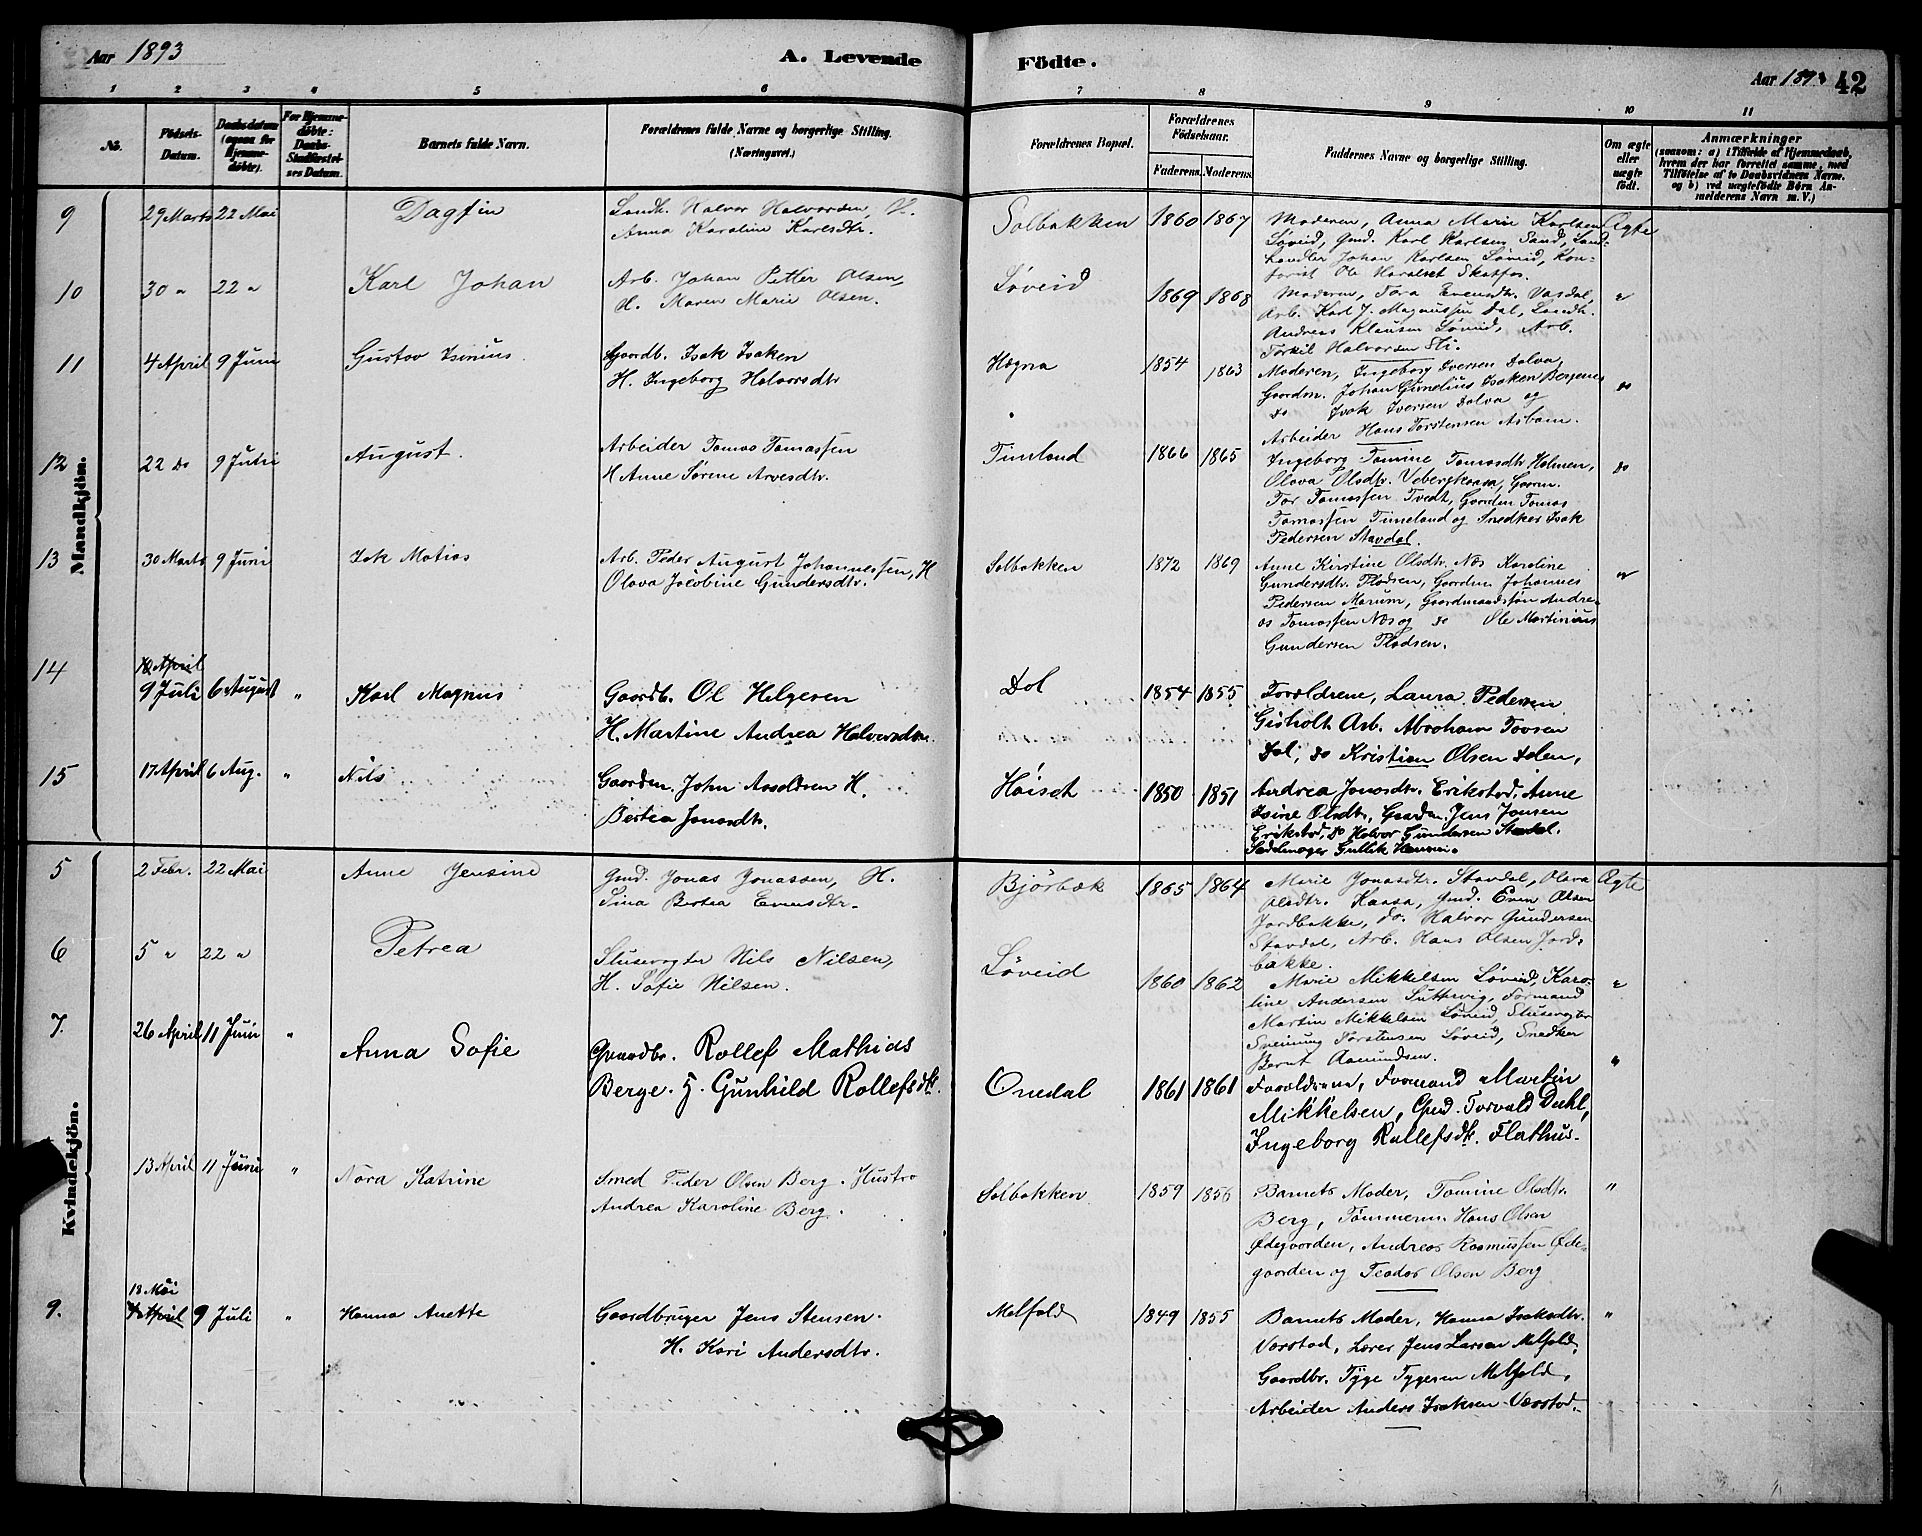 Aar 1893
A. Levende
Födte.
Aar 1893
42
1 2 3 4 5 6 7 8 9 10 11
No.
Födsels-
Datum.
Daabsdatum
(ogsaa for
Hjemme-
døbte).
For Hjemme-
døbte:
Daabs-
Stadfæstel-
ses Datum.
Barnets fulde Navn.
Forældrenes fulde Navne og borgerlige Stilling.
(Næringsvei.)
Forældrenes Bopæl.
Forældrenes
Födselsaar.
Faderens. Moderens.
Faddernes Navne og borgerlige Stilling.
Om ægte
eller
uægte
født.
Anmærkninger
(saasom: a) i Tilfælde af Hjemmedaab,
hvem der har forrettet samme, med
Tilføielse af to Daabsvidners Navne,
og b) ved uægtefødte Børn An-
melderens Navn m. V.)
Mandkjön.
9
29 Marts 22 Mai
Dagfin
Landh. Halvor Halvorsen, H.
Anna Karoline Karlsdtr.
Solbakken
1860 1867
Moderen, Anna Marie Karlsen
Løveid, Gmd. Karl Karlsen Sand, Land-
handler Johan Karlsen Løveid, Kon-
torist Ole Haralset Skotfos.
Ægte
10
30 " 22 "
Karl Johan
Arb. Johan Petter Olsen,
H. Maren Marie Olsen.
Løveid
1869 1868
Moderen, Tora Evensdtr. Vasdal,
Arb. Karl J. Magnussen Dal, Landh.
Andreas Klausen Løveid, Arb.
Torkil Halvorsen Sti.
"
11
4 April 9 Juni
Gustav Isinius.
Gaardb. Isak Isaken
H. Ingeborg Halvorsdtr
Hægna
1854 1863
Moderen, Ingeborg Iversen Dalva,
Gaardm. Johan Gunelius Isaken Bergenes
do Isak Iversen Dalva og
Arbeider Hans Torstensen Asbam.
do
12
22 do 9 Juli
August.
Arbeider Tomas Tomassen
H Anne Sørene Arvesdtr.
Timland
1866 1865
Ingeborg Tomine Tomasdtr Holmen,
Olava Olsdtr. Vebergkaasa, Gaardm.
Tor Tomassen Tvedt, Gaardm Tomas
Tomassen Timeland og Snedker Isak
Pedersen Stavdal.
do
13
30 Marts 9 Juni
Isak Matias
Arb. Peder August Johannessen, H
Olava Jacobine Gundersdtr.
Solbakken
1872 1869
Anne Kirstine Olsdtr. Næs Karoline
Gundersdtr. Plodsen, Gaardm Johannes
Pedersen Marum, Gaardmandssøn Andre-
as Tomassen Næs og do Ole Martinius
Gundersen Plodsen.
"
14
9 Juli 6 August "
Karl Magnus
Gaardb. Ol Helgesen
H. Martine Andrea Halvorsdtr.
Dol
1854 1855
Forældrene, Laura Pedersen
Gisholt Arb. Abraham Tovsen
Dal, do Kristian Olsen Dalen,
15
17 April 6 Aug. "
Nils
Gaardm. John Arvoldsen H.
Bertea Jonasdtr.
Høiset
1850 1851
Andrea Jonasdtr. Erikstad, Anne
Isine Olsdtr, Gaardm. Jens Jonsen
Erikstad, do Halvor Gundersen Stavdal.
Sadelmager Gullik Hansen.
Kvindekjön.
5
2 Febr. 22 Mai
Anne Jensine
Gmd. Jonas Jonassen, H.
Tina Bertea Evensdtr.
Bjørbæk
1865 1864
Marie Jonasdtr. Stavdal, Olava
Olsdtr. Kaasa, Gmd. Even Olsen
Jordbakke, do. Halvor Gundersen
Stavdal, Arb. Hans Olsen Jord-
bakke.
Ægte
6
5 " 22 "
Petrea
Slusevogter Nils Nilsen,
H. Sofie Nilsen.
Løveid
1860 1862
Marie Mikkelsen Løveid, Karo-
line Andersen Luthvig, Formand
Martin Mikkelsen Løveid, Slusevogter
Sveinung Torstensen Løveid, Snedker
Bernt Aamundsen.
"
7.
26 April 11 Juni "
Anna Sofie
Gaardbr. Rollef Mathias
Berge. H. Gunhild Rollefsdtr.
Omdal
1861 1861
Forældrene, Formand Martin
Mikkelsen, Gmd. Torvald Dahl,
Ingeborg Rollefsdtr. Flathus.
"
13 April 11 Juni "
Nora Katrine
Smed Peder Olsen Berg. Hustro
Andrea Karoline Berg.
Solbakken
1859 1856
Barnets Moder, Tomine Olsdtr.
Berg, Tømmerm. Hans Olsen
Ødegaarden, Andreas Rasmussen Øde-
gaarden og Teodor Olsen Berg
"
9.
18 Mai
9 Juli "
Hanna Anette
Gaardbruger Jens Stensen.
H. Kari Andersdtr.
Melfald
1849 1855
Barnets Moder, Hanna Isaksdtr.
Værstad, Lærer Jens Larsen Melfald,
Gaardbr. Tyge Tygesen Melfald,
Arbeider Anders Isaksen Værstad.
"